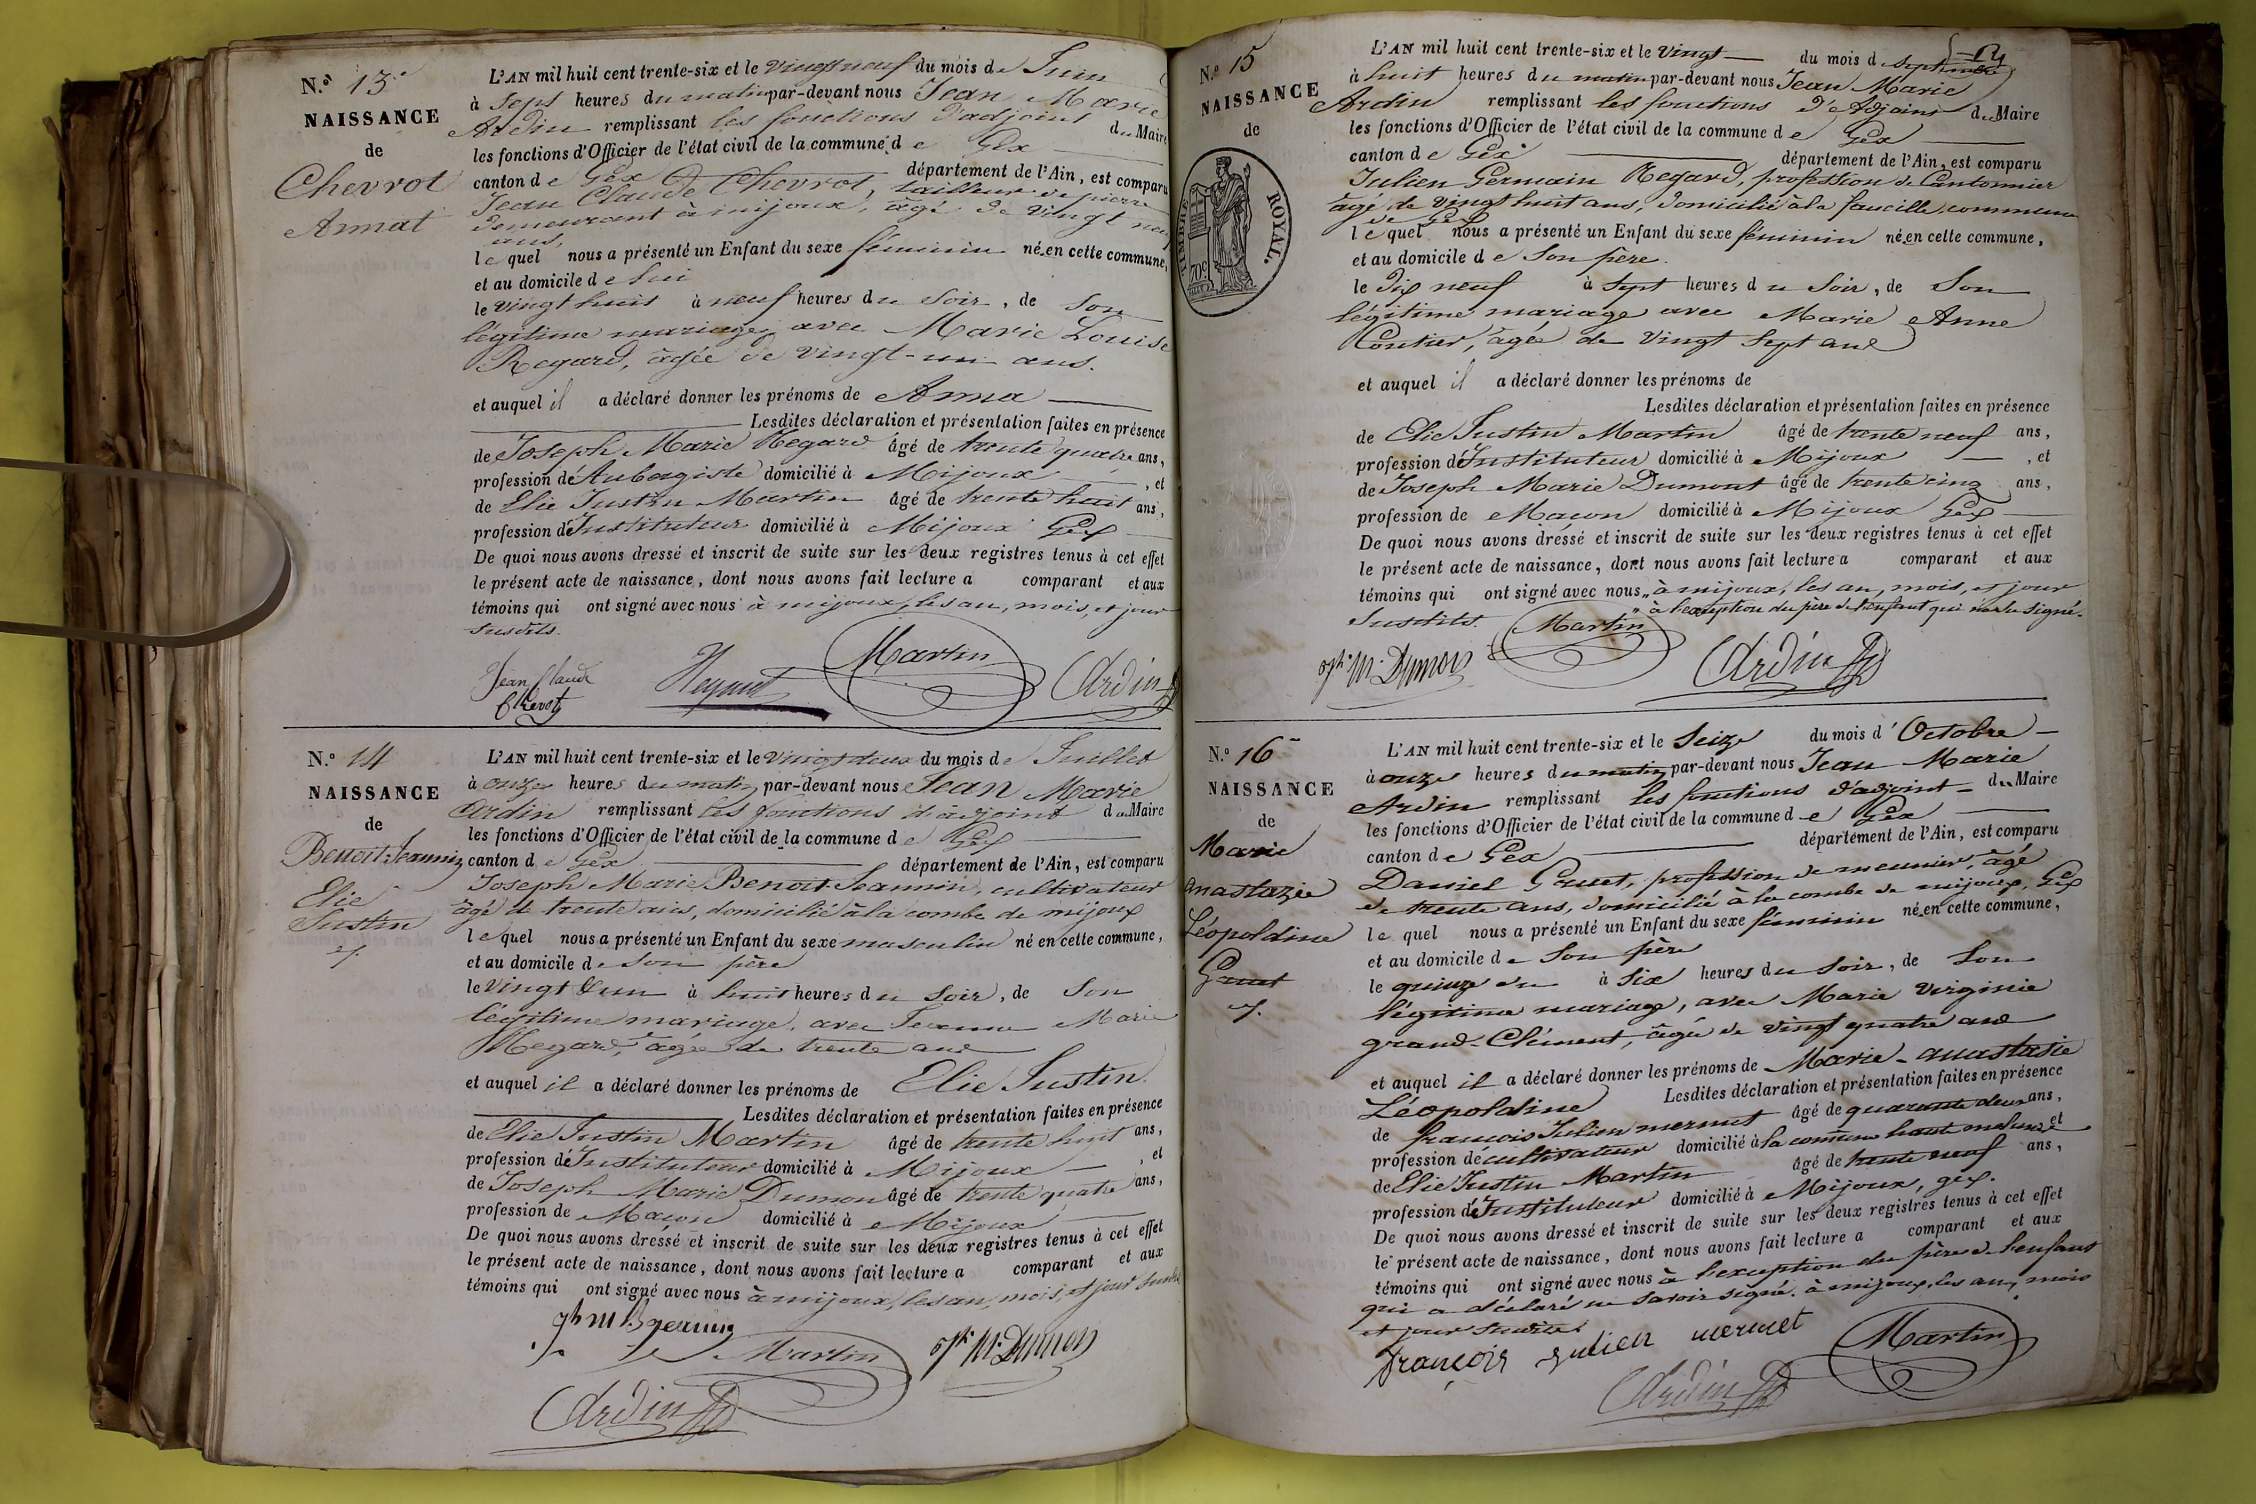 N.º 13.
NAISSANCE
de
Chevrot
Annat
L'AN mil huit cent trente-six et le vingt neuf du mois de Juin
à Sept heures du matin par-devant nous Jean Marie
Ardin remplissant les fonctions d'adjoint du Maire
les fonctions d'Officier de l'état civil de la commune de Gex
canton de Gex département de l'Ain, est comparu
Jean Claude Chevrot, tailleur de pierre
demeurant à mijoux, âgé de vingt neuf
ans,
lequel nous a présenté un Enfant du sexe féminin né en cette commune,
et au domicile de lui
le vingt huit à neuf heures du Soir, de Son
légitime mariage, avec Marie Louise
Regard, âgée de vingt-un ans.
et auquel il a déclaré donner les prénoms de Anna
Lesdites déclaration et présentation faites en présence
de Joseph Marie Regard âgé de trente quatre ans,
profession d'Aubergiste domicilié à Mijoux, et
de Elie Justin Martin âgé de trente huit ans,
profession d'Instituteur domicilié à Mijoux Gex
De quoi nous avons dressé et inscrit de suite sur les deux registres tenus à cet effet
le présent acte de naissance, dont nous avons fait lecture a comparant et aux
témoins qui ont signé avec nous à mijoux, les an, mois, et jour
susdits.
Jean Claude
Chevrot
Martin
Ardin
N.º 14
NAISSANCE
de
Benoit-Jeannin
Elie
Justin
L'AN mil huit cent trente-six et le vingt deux du mois de Juillet
à onze heures du matin, par-devant nous Jean Marie
Ardin remplissant les fonctions d'adjoint du Maire
les fonctions d'Officier de l'état civil de la commune de Gex
canton de Gex département de l'Ain, est comparu
Joseph Marie Benoit-Jeannin, cultivateur
âgé de trente ans, domicilié à la combe de mijoux
lequel nous a présenté un Enfant du sexe masculin né en cette commune,
et au domicile de Son père
le vingt un à huit heures du Soir, de Son
légitime mariage, avec Jeanne Marie
Regard, âgée de trente ans
et auquel il a déclaré donner les prénoms de Elie Justin.
Lesdites déclaration et présentation faites en présence
de Elie Justin Martin âgé de trente huit ans,
profession d'Instituteur domicilié à Mijoux, et
de Joseph Marie Dumon âgé de trente quatre ans,
profession de Maçon domicilié à Mijoux
De quoi nous avons dressé et inscrit de suite sur les deux registres tenus à cet effet
le présent acte de naissance, dont nous avons fait lecture a comparant et aux
témoins qui ont signé avec nous à mijoux, les an, mois, et jour susdits
Martin
M. Dumon
Ardin
14
N.º 15
NAISSANCE
de
TIMBRE ROYAL.
70c
L'AN mil huit cent trente-six et le Vingt du mois de Septembre
à huit heures du matin par-devant nous Jean Marie
Ardin remplissant les fonctions d'Adjoint du Maire
les fonctions d'Officier de l'état civil de la commune de Gex
canton de Gex département de l'Ain, est comparu
Julien Germain Regard, profession de Cantonnier
âgé de vingt huit ans, domicilié à la faucille, commune
de Gex
lequel nous a présenté un Enfant du sexe féminin né en cette commune,
et au domicile de Son père.
le Dix neuf à Sept heures du Soir, de Son
légitime mariage avec Marie Anne
Coutier, âgée de Vingt Sept ans
et auquel il a déclaré donner les prénoms de
Lesdites déclaration et présentation faites en présence
de Elie Justin Martin âgé de trente neuf ans,
profession d'Instituteur domicilié à Mijoux, et
de Joseph Marie Dumont âgé de trente cinq ans,
profession de Macon domicilié à Mijoux Gex
De quoi nous avons dréssé et inscrit de suite sur les deux registres tenus à cet effet
le présent acte de naissance, dont nous avons fait lecture a comparant et aux
témoins qui ont signé avec nous, à mijoux, les an, mois, et jour
Susdits. à l'exception du père de l'enfant qui n'a su signé.
Martin
M. Dumon
Ardin
N.º 16
NAISSANCE
de
Marie
anastazie
Léopoldine
Gruet
L'AN mil huit cent trente-six et le Seize du mois d'Octobre
à onze heures du matin par-devant nous Jean Marie
Ardin remplissant les fonctions d'adjoint du Maire
les fonctions d'Officier de l'état civil de la commune de Gex
canton de Gex département de l'Ain, est comparu
Daniel Gruet, profession de meunier, âgé
de trente ans, domicilié à la combe de mijoux, Gex
le quel nous a présenté un Enfant du sexe féminin né en cette commune,
et au domicile de Son père
le quinze du à Six heures du Soir, de Son
légitime mariage, avec Marie Virginie
grand-Clément, âgée de vingt quatre ans
et auquel il a déclaré donner les prénoms de Marie-anastasie
Léopoldine Lesdites déclaration et présentation faites en présence
de françois Julien mermet âgé de quarante deux ans,
profession de cultivateur domicilié à la commune haute molune et
de Elie Justin Martin âgé de trente neuf ans,
profession d'Instituteur domicilié à Mijoux, gex.
De quoi nous avons dressé et inscrit de suite sur les deux registres tenus à cet effet
le présent acte de naissance, dont nous avons fait lecture a comparant et aux
témoins qui ont signé avec nous à l'exception du père de l'enfant
qui a déclaré ne savoir signé. à mijoux, les an, mois
et jour susdits
françois julien mermet
Martin
Ardin